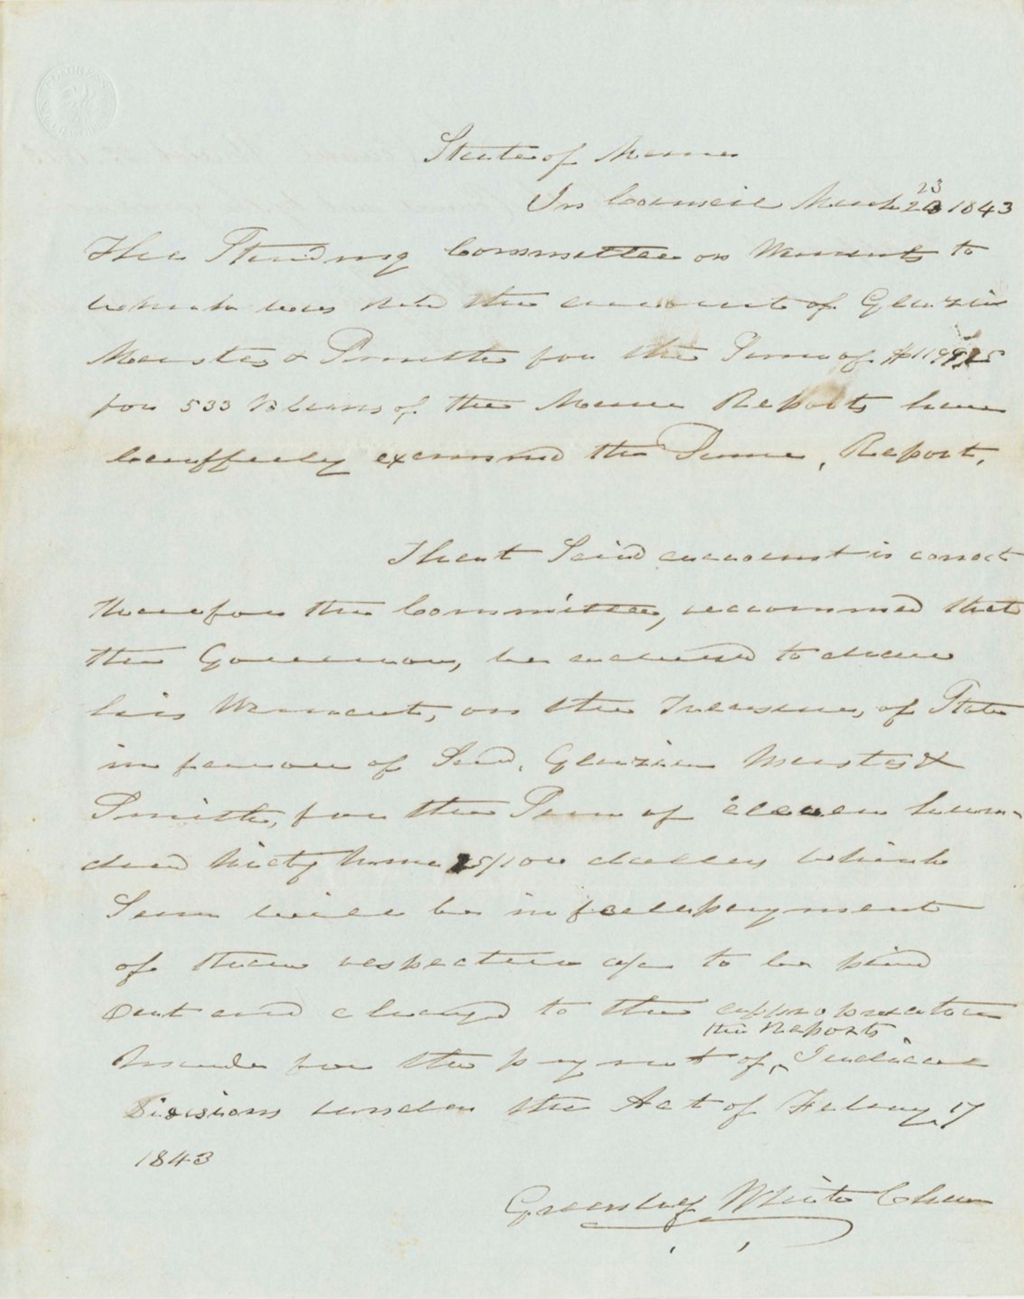 State of Maine
In Council March 23 1843
The Standing Committee on Warrants to
which was the account of Glazier
Masters & Smith for the Sum of $1199,25
for 533 Volums of the Maine Reports have
examined the Same, Report,
That Said account is correct
therefore the Committee, recommend that
the Governor, be advised to draw
his Warrant, on the Treasurer, of State
in favour of Said, Glazier Masters &
Smith, for the Sum of eleven hun-
dred Ninty Nine 25/100 dollars which
Sum will be in full payment
of their respective a/c to be paid
out and charged to the appropriation
made for the payment of the Reports Judicial
Disisions under the Act of Febuary 17
1843
Greenleaf White Chair